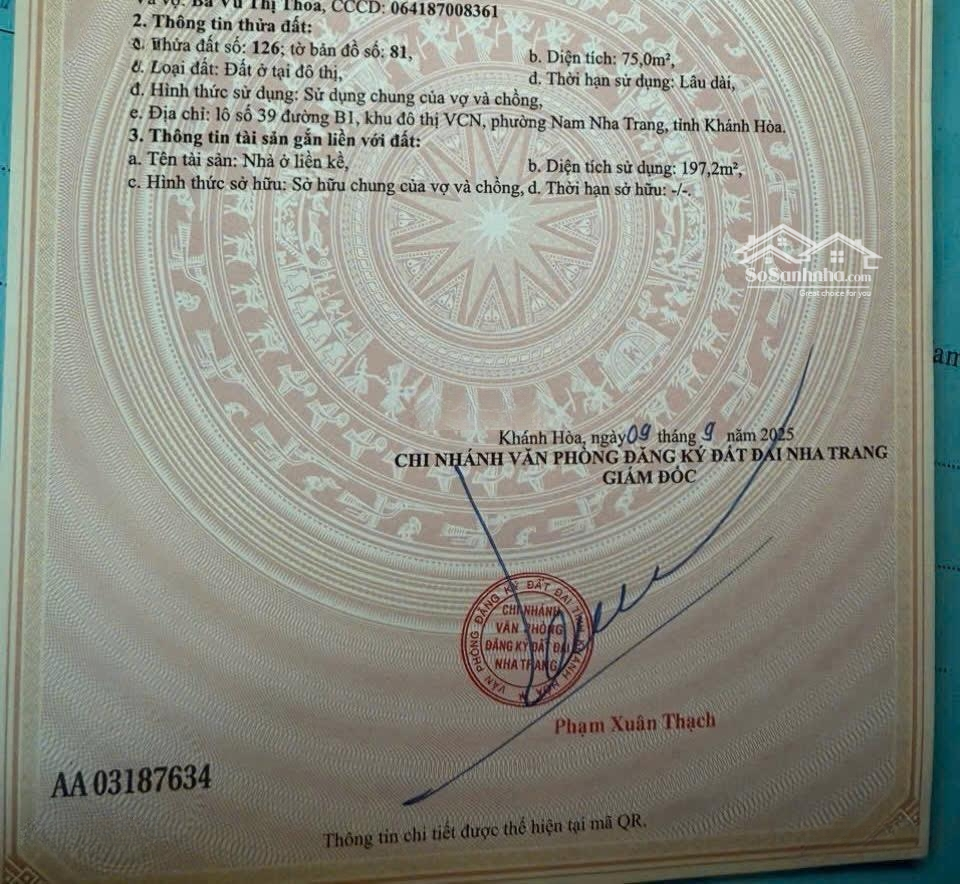 Và vợ: Bà Vũ Thị Thoa, CCCD: 064187008361
2. Thông tin thửa đất:
a. Thửa đất số: 126; tờ bản đồ số: 81, b. Diện tích: 75,0m²,
c. Loại đất: Đất ở tại đô thị, d. Thời hạn sử dụng: Lâu dài,
đ. Hình thức sử dụng: Sử dụng chung của vợ và chồng,
e. Địa chỉ: lô số 39 đường B1, khu đô thị VCN, phường Nam Nha Trang, tỉnh Khánh Hòa.
3. Thông tin tài sản gắn liền với đất:
a. Tên tài sản: Nhà ở liền kề, b. Diện tích sử dụng: 197,2m²,
c. Hình thức sở hữu: Sở hữu chung của vợ và chồng, d. Thời hạn sở hữu: -/-.
SoSanhnha.com
Great choice for you
Khánh Hòa, ngày 09 tháng 9 năm 2025
CHI NHÁNH VĂN PHÒNG ĐĂNG KÝ ĐẤT ĐAI NHA TRANG
GIÁM ĐỐC
VĂN PHÒNG ĐĂNG KÝ ĐẤT ĐAI TỈNH KHÁNH HÒA
CHI NHÁNH
VĂN PHÒNG
ĐĂNG KÝ ĐẤT ĐAI
NHA TRANG
Phạm Xuân Thạch
AA 03187634
Thông tin chi tiết được thể hiện tại mã QR.